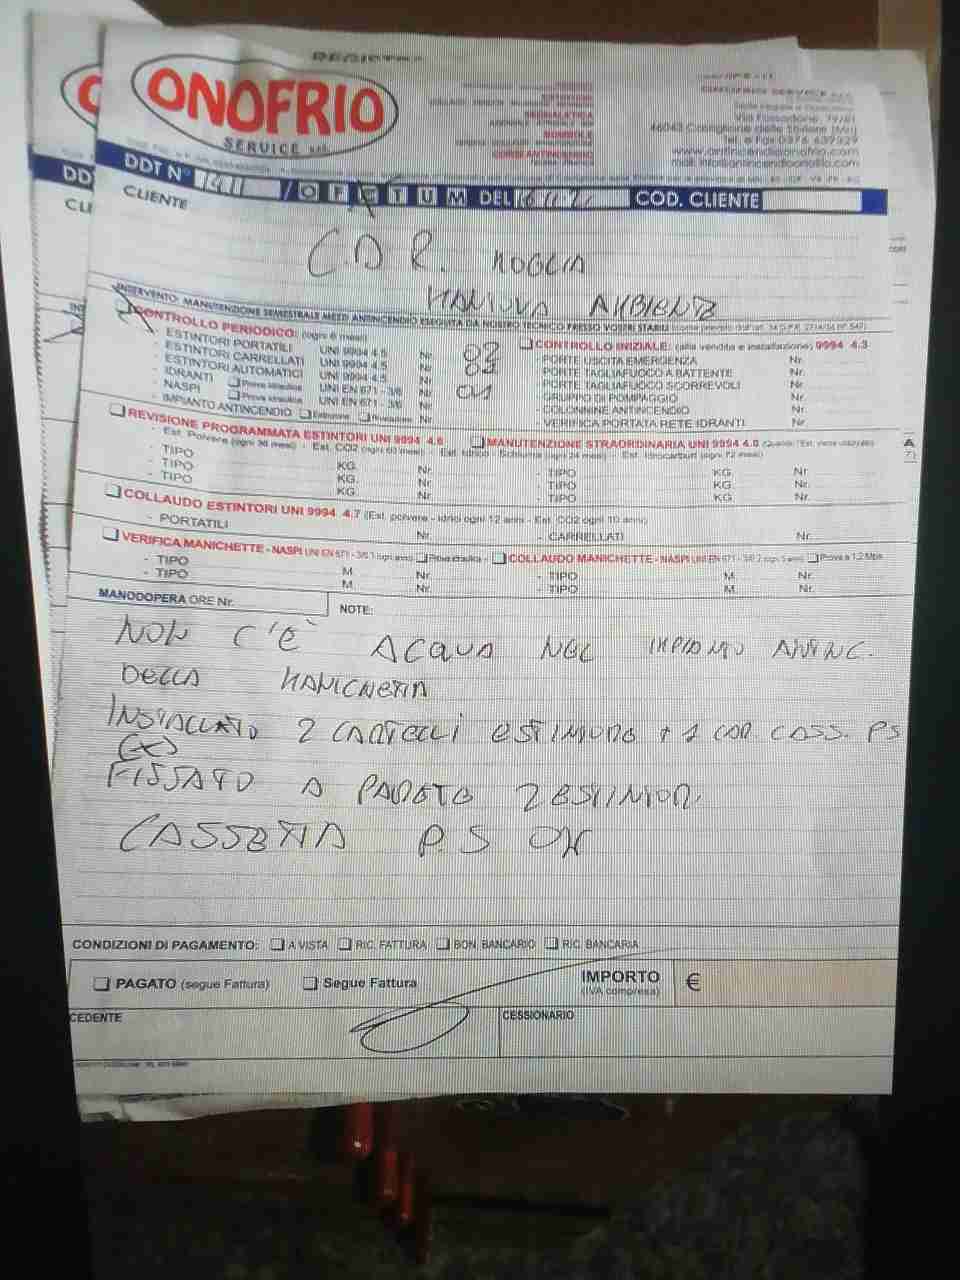 ONOFRIO
SERVICE s.r.l.
SEGNALETICA
Via Fossadone, 79/81
46043 Castiglione delle Stiviere (Mn)
Tel. e Fax 0376 637329
www.antincendioonofrio.com
mail: info@antincendioonofrio.com
DDT N° / O F C T U M DEL COD. CLIENTE
CLIENTE
C.D.R. MOGLIA
MANTOVA AMBIENTE
INTERVENTO: MANUTENZIONE SEMESTRALE MEZZI ANTINCENDIO ESEGUITA DA NOSTRO TECNICO PRESSO VOSTRI STABILI
CONTROLLO PERIODICO: (ogni 6 mesi)
- ESTINTORI PORTATILI UNI 9994 4.5 Nr. 02
- ESTINTORI CARRELLATI UNI 9994 4.5 Nr.
- ESTINTORI AUTOMATICI UNI 9994 4.5 Nr.
- IDRANTI Prova idraulica UNI EN 671 - 3/6 Nr. 01
- NASPI Prova idraulica UNI EN 671 - 3/6 Nr.
- IMPIANTO ANTINCENDIO Nr.
CONTROLLO INIZIALE: (alla vendita e installazione) 9994 4.3
- PORTE USCITA EMERGENZA Nr.
- PORTE TAGLIAFUOCO A BATTENTE Nr.
- PORTE TAGLIAFUOCO SCORREVOLI Nr.
- GRUPPO DI POMPAGGIO Nr.
- COLONNINE ANTINCENDIO Nr.
- VERIFICA PORTATA RETE IDRANTI Nr.
REVISIONE PROGRAMMATA ESTINTORI UNI 9994 4.6 MANUTENZIONE STRAORDINARIA UNI 9994 4.8
- Est. Polvere (ogni 36 mesi) - Est. CO2 (ogni 60 mesi) - Est. Idrico - Schiuma (ogni 24 mesi) - Est. Idrocarburi (ogni 72 mesi)
- TIPO KG. Nr. - TIPO KG. Nr.
- TIPO KG. Nr. - TIPO KG. Nr.
- TIPO KG. Nr. - TIPO KG. Nr.
COLLAUDO ESTINTORI UNI 9994 4.7 (Est. polvere - idrici ogni 12 anni - Est. CO2 ogni 10 anni)
- PORTATILI Nr. - CARRELLATI Nr.
VERIFICA MANICHETTE - NASPI UNI EN 671 - 3/6.1 (ogni anno) Prova idraulica - COLLAUDO MANICHETTE - NASPI UNI EN 671 - 3/6.2 (ogni 5 anni) Prova a 1,2 Mpa
- TIPO M. Nr. - TIPO M. Nr.
- TIPO M. Nr. - TIPO M. Nr.
MANODOPERA ORE Nr. NOTE:
NON C'È ACQUA NEL IMPIANTO ANTINC.
DELLA MANICHETTA
INSTALLATO 2 CARTELLI ESTINTORE + 1 CASS. PS
(X)
FISSATO A PARETE 2 ESTINTORI
CASSETTA P.S OK
CONDIZIONI DI PAGAMENTO: A VISTA RIC. FATTURA BON. BANCARIO RIC. BANCARIA
PAGATO (segue Fattura) Segue Fattura IMPORTO €
(IVA compresa)
CEDENTE CESSIONARIO